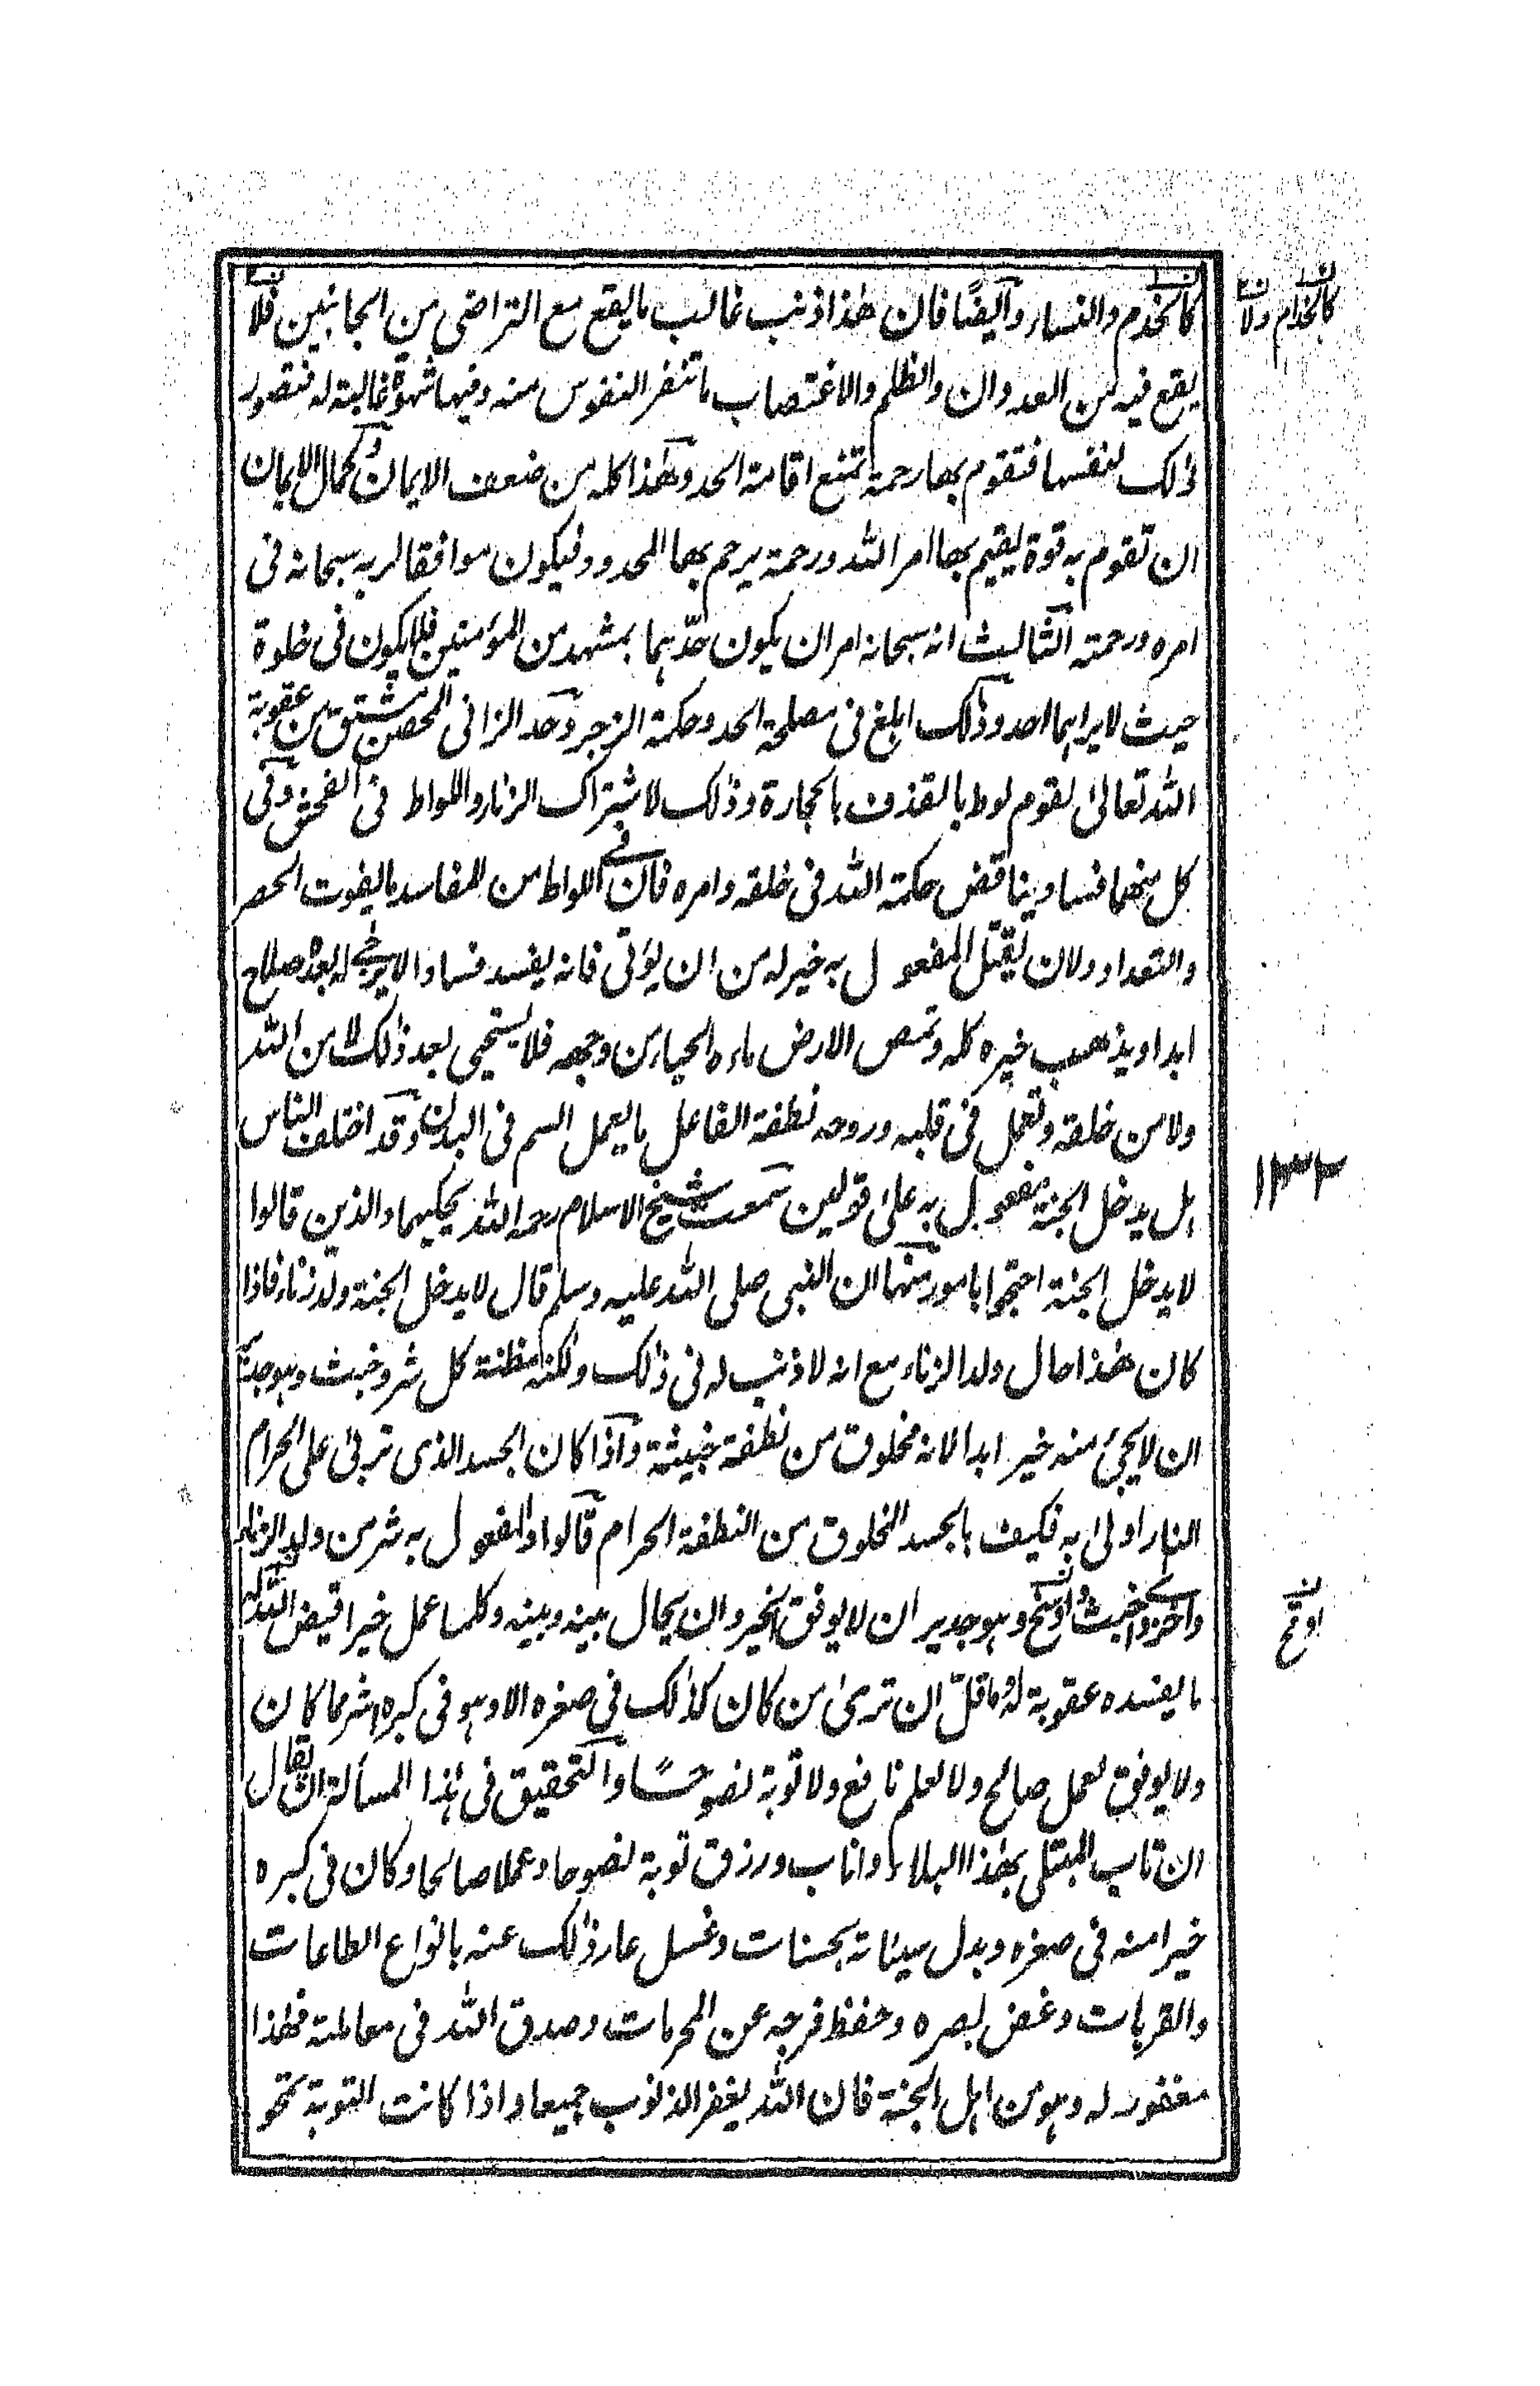 كالخدم والنساء وايضًا فان هذا ذنب غالب ما يقع مع التراضى من الجانبين فلا
يقع فيه من العدوان والظلم والاغتصاب ما تنفر النفوس منه وفيها شهوة غالبة له فتصور
ذلك لنفسها فتقوم بها رحمة تمنع اقامة الحد وهذا كله من ضعف الايمان وكمال الايمان
ان تقوم به قوة يقيم بها امر الله ورحمة يرحم بها المحدود فيكون موافقا لربه سبحانه فى
امره ورحمته الثالث انه سبحانه امر ان يكون حدّهما بمشهد من المؤمنين فلا يكون فى خلوة
حيث لا يراهما احد وذلك ابلغ فى مصلحة الحد وحكمة الزجر وحد الزانى المحصن مشتق من عقوبة
الله تعالى لقوم لوط بالقذف بالحجارة وذلك لاشتراك الزناء واللواط فى الفحش وفى
كل منهما فساد يناقض حكمة الله فى خلقه وامره فان فى اللواط من المفاسد ما يفوت الحصر
والتعداد ولان يقتل المفعول به خير له من ان يؤتى فانه يفسد فسادا لا يرجى له بعده صلاح
ابدا ويذهب خيره كله وتمص الارض ماءه الحياء من وجهه فلا يستحيى بعد ذلك لا من الله
ولا من خلقه وتعمل فى قلبه وروحه نطفة الفاعل ما يعمل السم فى البدن وقد اختلف الناس
هل يدخل الجنة مفعول به على قولين سمعت شيخ الاسلام رحمه الله يحكيهما والذين قالوا
لا يدخل الجنة احتجوا بامور منها ان النبى صلى الله عليه وسلم قال لا يدخل الجنة ولد زناء فاذا
كان هذا حال ولد الزناء مع انه لا ذنب له فى ذلك ولكنه مظنة كل شر وخبث وهو جدير
ان لا يجئ منه خير ابدا لانه مخلوق من نطفة خبيثة واذا كان الجسد الذى تربى على الحرام
النار اولى به فكيف بالجسد المخلوق من النطفة الحرام قالوا والمفعول به شر من ولد الزناء
واخزى واخبث واوسخ وهو جدير ان لا يوفق لخير وان يحال بينه وبينه وكلما عمل خيرا قيض الله له
ما يفسده عقوبة له وما قلّ ان ترى من كان كذلك فى صغره الا وهو فى كبره شر مما كان
ولا يوفق لعمل صالح ولا لعلم نافع ولا توبة نصوحًا والتحقيق فى هذا المسألة ان يقال
ان تاب المبتلى بهذا البلاء واناب ورزق توبة نصوحا وعملا صالحا وكان فى كبره
خيرا منه فى صغره وبدل سيئاته بحسنات وغسل عار ذلك عنه بانواع الطاعات
والقربات وغض بصره وحفظ فرجه عن المحرمات وصدق الله فى معاملته فهذا
مغفور له وهو من اهل الجنة فان الله يغفر الذنوب جميعا واذا كانت التوبة تمحو
كالخدام ولا
١٣٢
اوقح